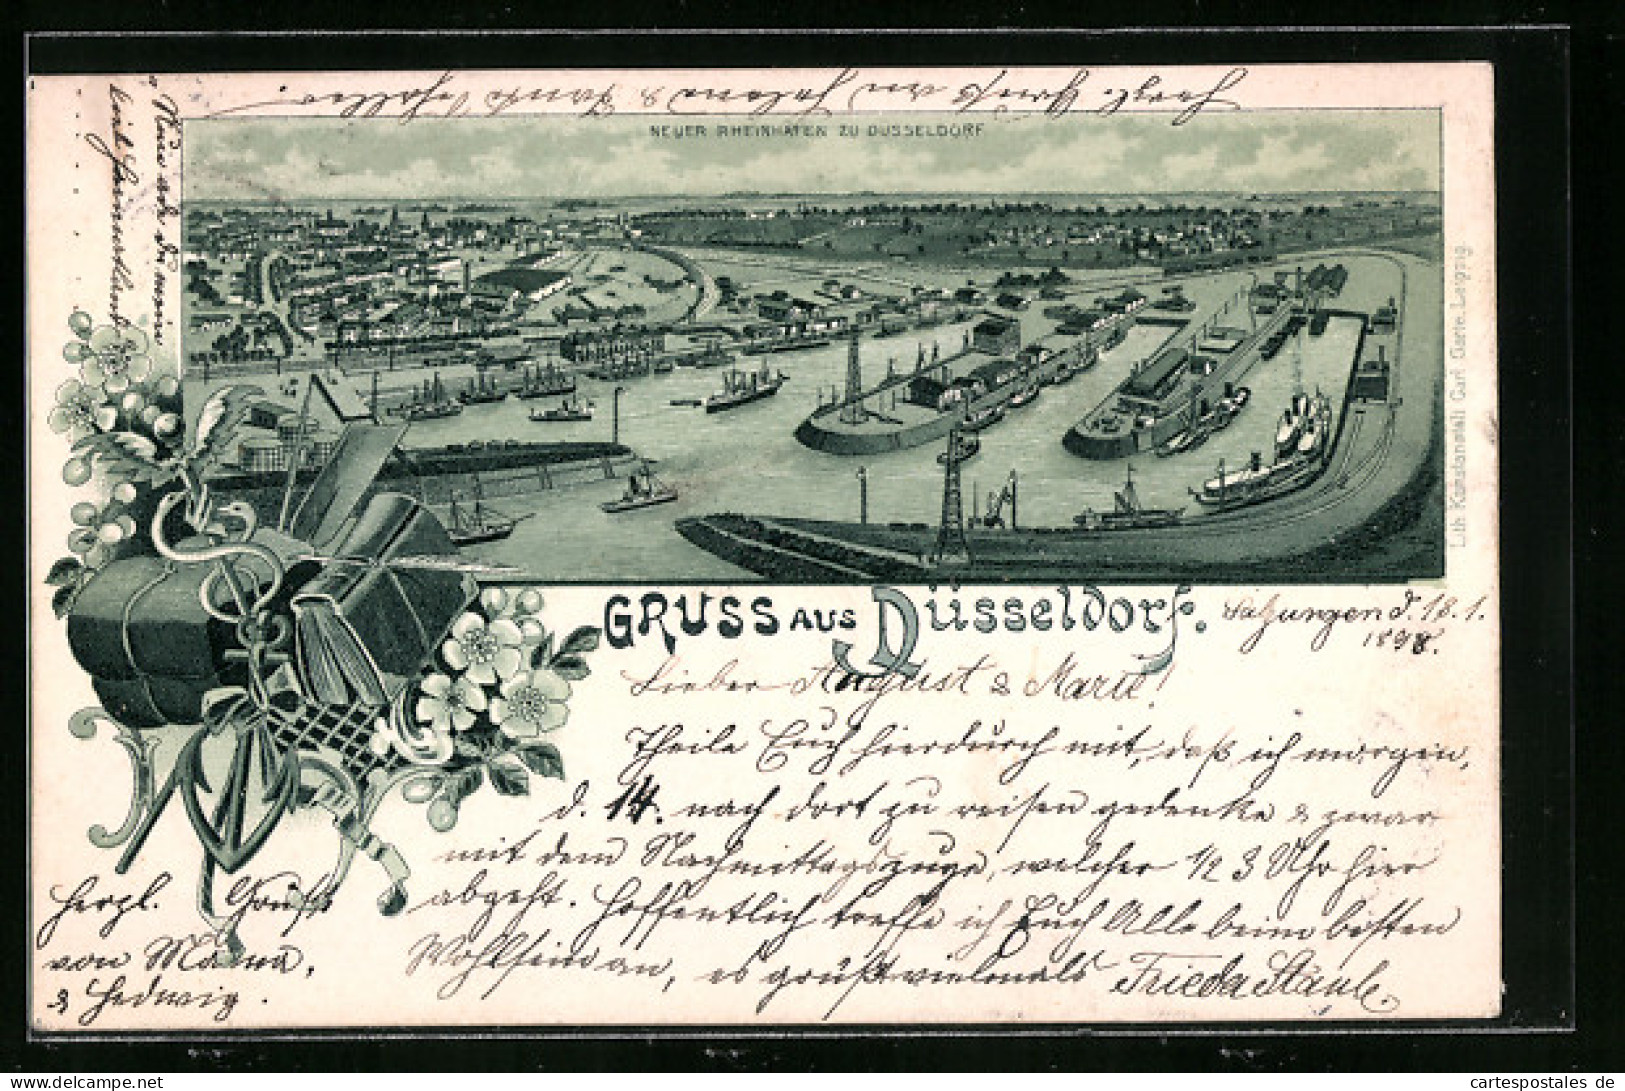 Herzl. Gruß an Helene & Tante
NEUER RHEINHAFEN ZU DÜSSELDORF
GRUSS AUS Düsseldorf.
Lith. Kunstanstalt Carl Garte, Leipzig.
d. 1
189
Lieber August & Marie!
Theile Euch hierdurch mit, daß ich morgen,
d. 14. nach dort zu reisen gedenke & zwar
mit dem Nachmittagszuge, welcher 1/2 3 Uhr hier
abgeht. Hoffentlich treffe ich Euch Alle beim besten
Wohlsein an, es grüßt vielmals Frieda Stäule
Herzl. Gruß
von Mama,
& Hedwig.
cartespostales de
www.cartespostales.de